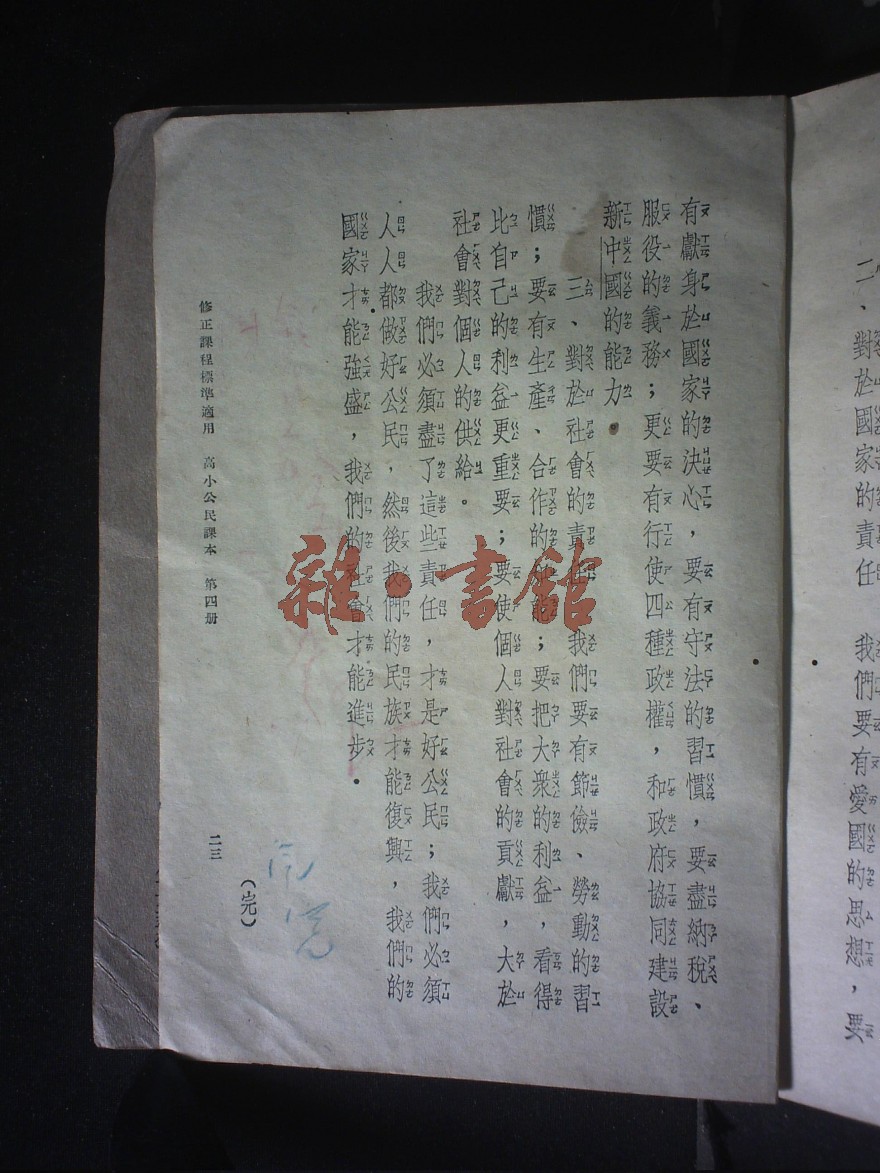 二、對於國家的責任　我們要有愛國的思想，要
有獻身於國家的決心，要有守法的習慣，要盡納稅、
服役的義務；更要有行使四種政權，和政府協同建設
新中國的能力。
三、對於社會的責任　我們要有節儉、勞動的習
慣；要有生產、合作的效能；要把大衆的利益，看得
比自己的利益更重要；要使個人對社會的貢獻，大於
社會對個人的供給。
我們必須盡了這些責任，才是好公民；我們必須
人人都做好公民，然後我們的民族才能復興，我們的
國家才能強盛，我們的社會才能進步。
(完)
修正課程標準適用　高小公民課本　第四册
二三
雜·書館